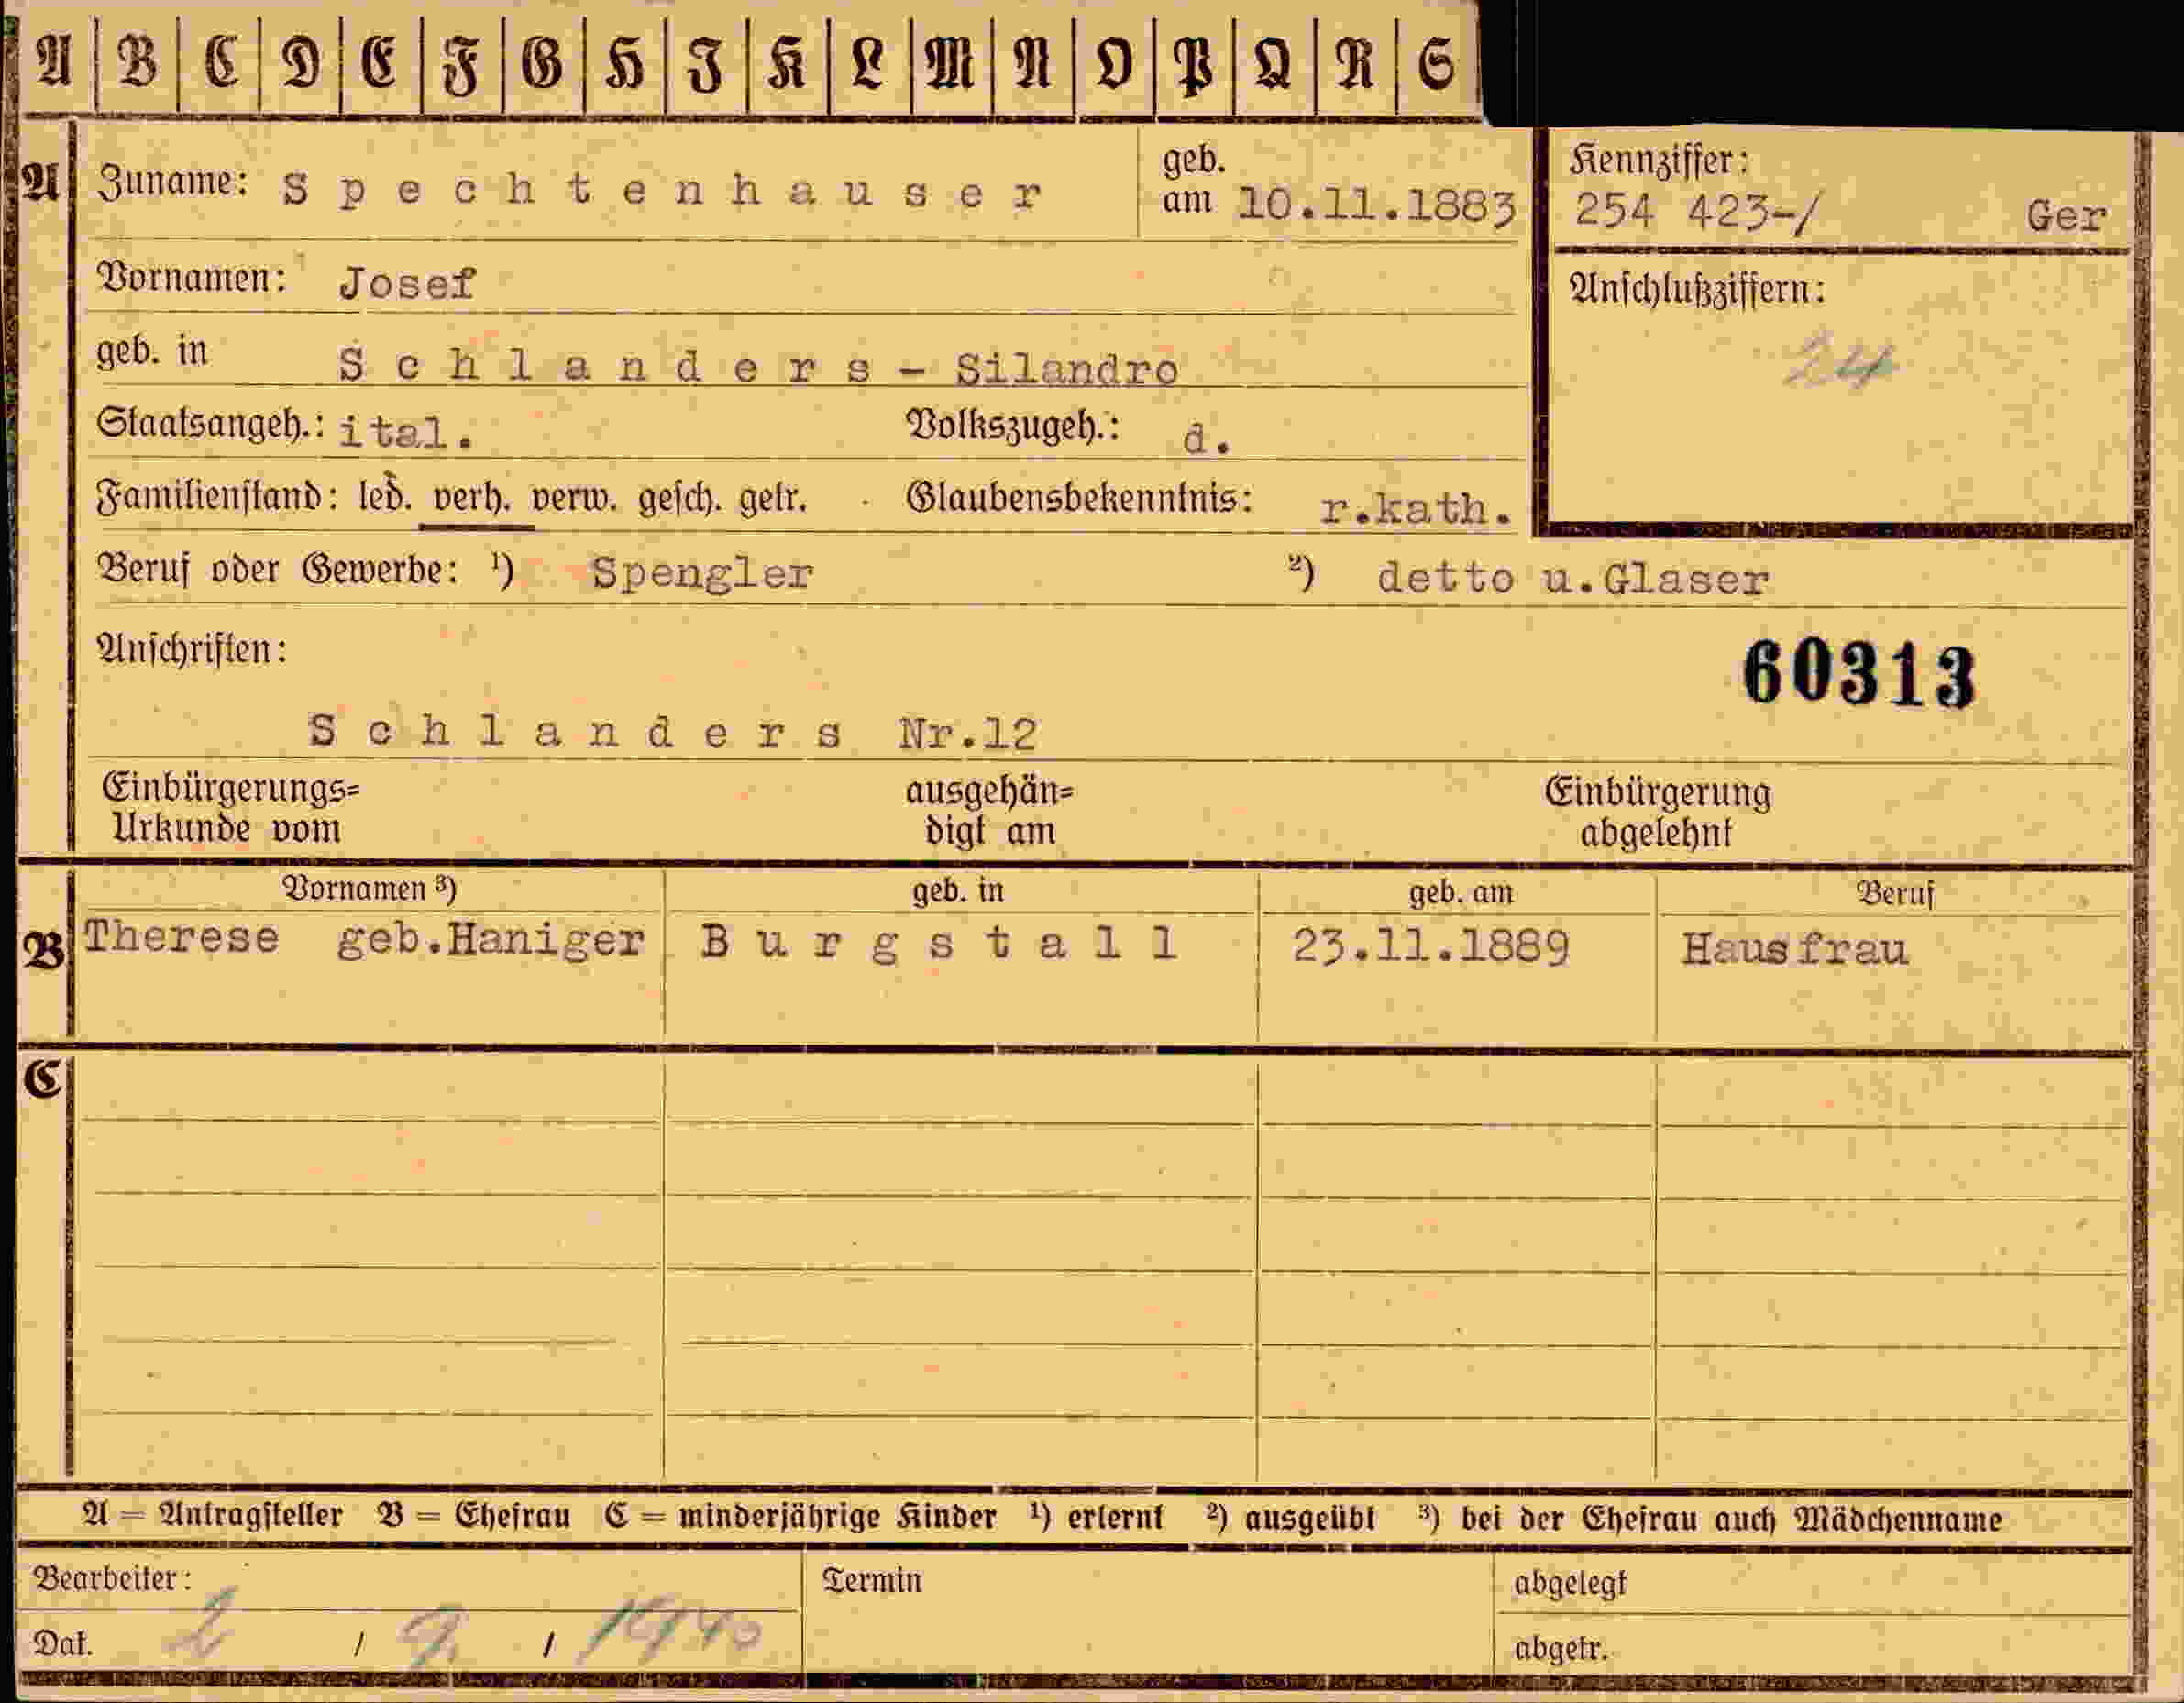 A B C D E F G H I K L M N O P Q R S
A Zuname: Spechtenhauser geb. am 10.11.1883
Kennziffer:
254 423-/ Ger
Vornamen: Josef
Anschlußziffern:
24
geb. in Schlanders - Silandro
Staatsangeh.: ital. Volkszugeh.: d.
Familienstand: led. verh. verw. gesch. getr. Glaubensbekenntnis: r.kath.
Beruf oder Gewerbe: ¹) Spengler ²) detto u.Glaser
Anschriften:
60313
Schlanders Nr.12
Einbürgerungs= ausgehän= Einbürgerung
Urkunde vom digt am abgelehnt
Vornamen ³) geb. in geb. am Beruf
B Therese geb.Haniger Burgstall 23.11.1889 Hausfrau
C
A = Antragsteller B = Ehefrau C = minderjährige Kinder ¹) erlernt ²) ausgeübt ³) bei der Ehefrau auch Mädchenname
Bearbeiter: Termin abgelegt
Dat. 2 / 9. / 1940 abgetr.